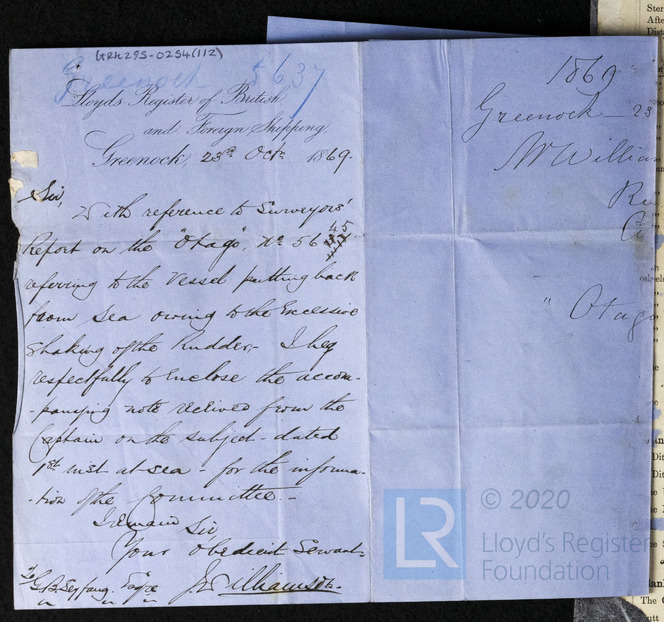 GRK295-0254(112)
Greenock 5637
Lloyds Register of British
and Foreign Shipping,
Greenock, 23rd Octr 1869.
Sir,
With reference to Surveyors'
Report on the "Otago", No 56
45
referring to the Vessel putting back
from Sea owing to the Excessive
Shaking of the Rudder,- I beg
respectfully to Enclose the accom-
-panying note received from the
Captain on the subject - dated
1st inst at sea - for the informa-
-tion of the Committee.-
I remain Sir,
Your Obedient Servant
J Williamson.
To G.B. Seyfang. Esqre
1869
Greenock - 23
Mr William
"Otago
LR
© 2020
Lloyd's Register
Foundation